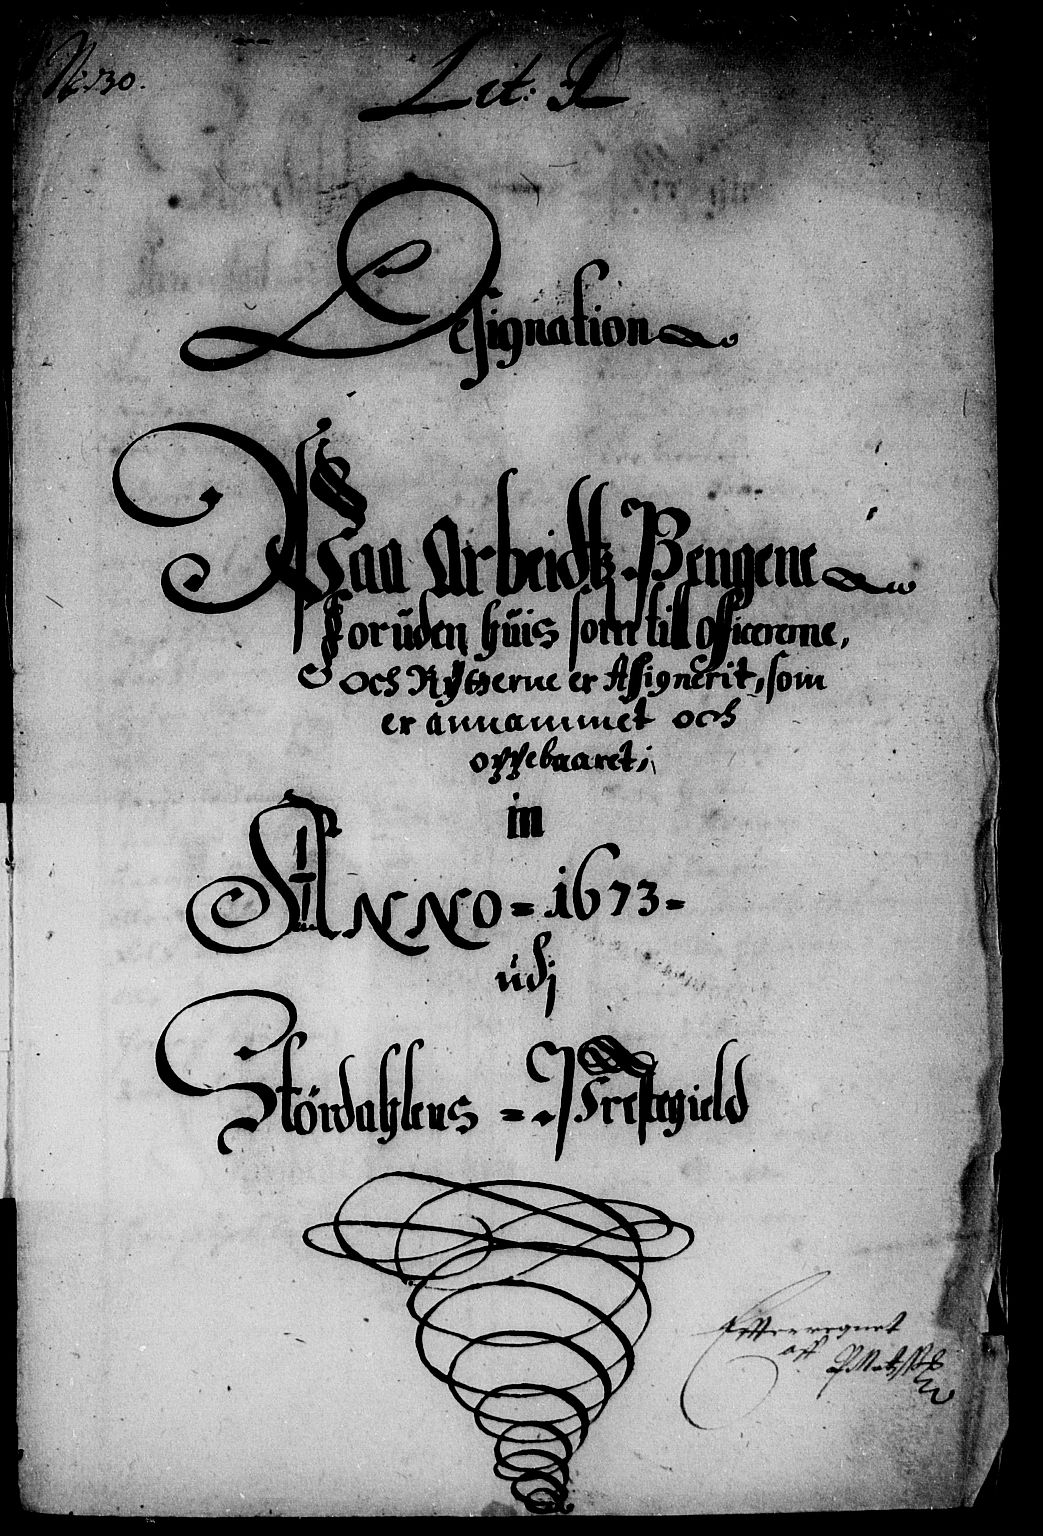 No: 130.
Lit: A
Designation
Paa Arbeidtz Pengene
Foruden huis som till Officererne,
Och Rÿtterne er Assignerit, som
er annammet och
oppebaaret,
in
ANNO = 1673 =
udj
Stördahlens = Prestegield
Effterregnet
aff